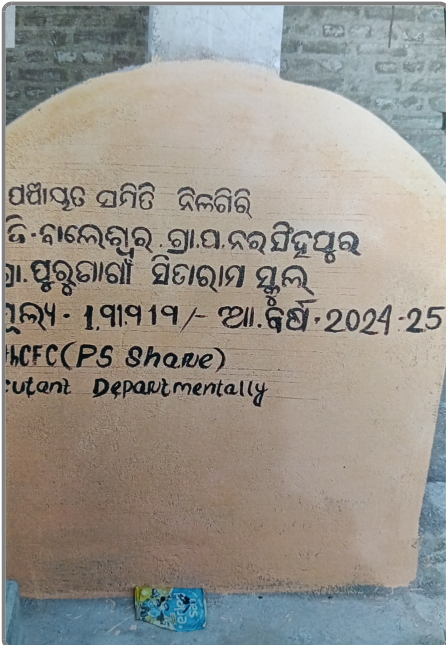 ପଞ୍ଚାୟତ ସମିତି ନିଳଗିରି
ଜି.ବାଲେଶ୍ୱର.ଗ୍ରା.ପ.ନରସିଂହପୁର
ସିତାରାମ ସ୍କୁଲ୍
ମୂଲ୍ୟ - ଆ.ବର୍ଷ-2024-25
thCFC(PS Share)
cutant Departmentally